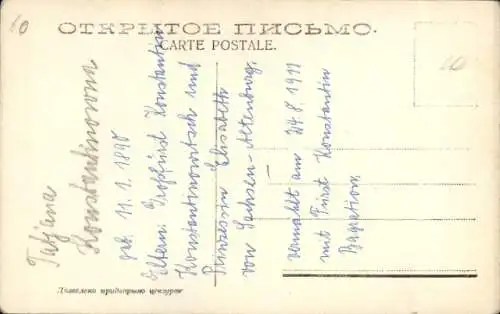 10
ОТКРЫТОЕ ПИСЬМО.
CARTE POSTALE.
Tatjana
Konstantinowna
geb. 11.1.1890
Eltern: Großfürst Konstantin
Konstantinowitsch und
Prinzessin Elisabeth
von Sachsen-Altenburg,
vermählt am 24.8.1911
mit Fürst Konstantin
Bagration,
10
Дозволено